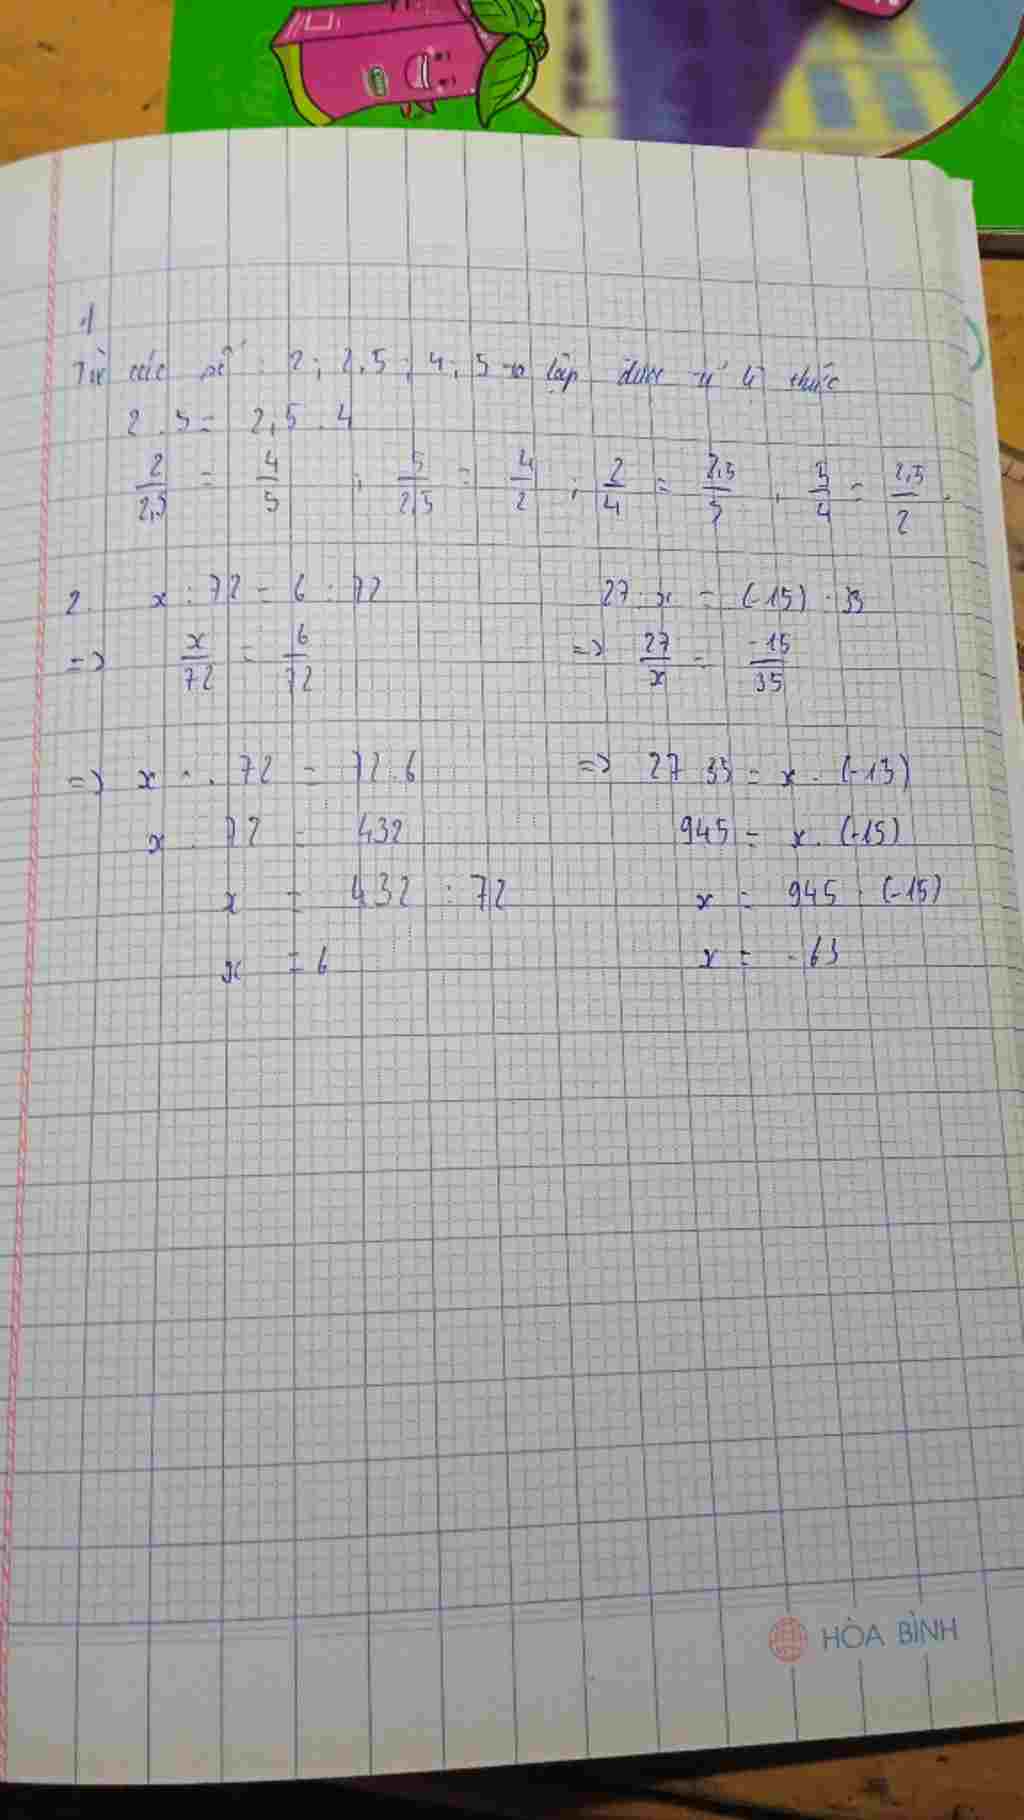 1
Từ các số : 2 ; 2,5 ; 4 ; 5 → lập được tỉ lệ thức
2 . 5 = 2,5 . 4
2/2,5 = 4/5 ; 5/2,5 = 4/2 ; 2/4 = 2,5/5 ; 5/4 = 2,5/2 .
2. x : 72 = 6 : 72 27 : x = (-15) : 35
=> x/72 = 6/72 => 27/x = -15/35
=> x . 72 = 72 . 6 => 27 35 = x . (-15)
x . 72 = 432 945 = x . (-15)
x = 432 : 72 x = 945 : (-15)
x = 6 x = -63
HÒA BÌNH